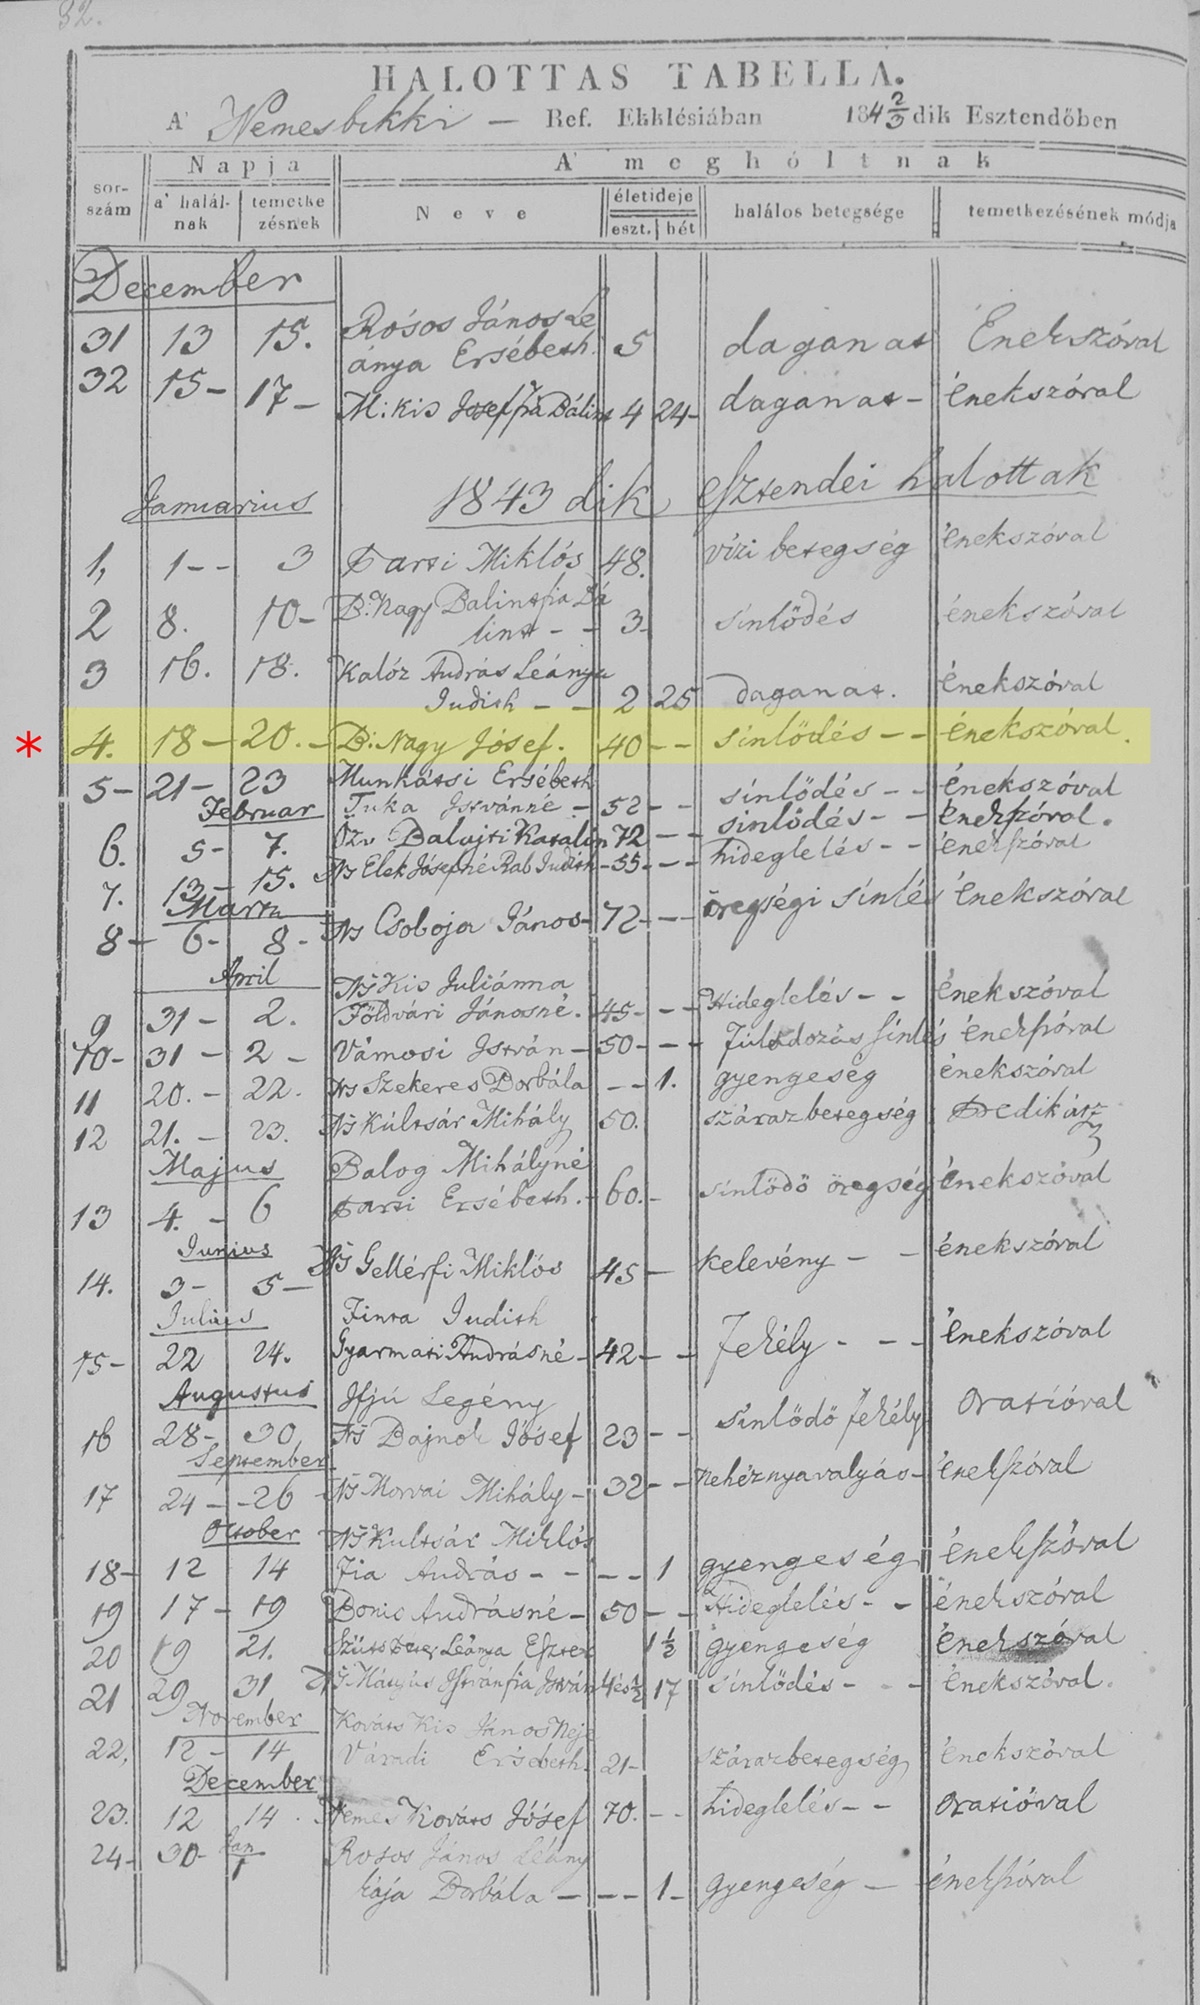 32.
HALOTTAS TABELLA.
A' Nemesbikki — Ref. Ekklésiában 184 2/3 dik Esztendőben
Napja A' meghóltnak
sor-szám a' halál-nak temetke zésnek Neve életideje eszt. hét halálos betegsége temetkezésének módja
December
31 13 15. Rósos János Le
ánya Ersébeth. 5 daganat Énekszóval
32 15 – 17 – M: Kis Josef fia Bálint 4 24 – daganat – énekszóval
Januarius 1843 dik Esztendei halottak
1, 1 – – 3 Tarsi Miklós 48. vízi betegség énekszóval
2 8. 10 – B: Nagy Balint fia Bá
lint – – 3 – sinlődés énekszóval
3 16. 18. Kalóz András Leánya
Judith – – 2 25 daganat. énekszóval
* 4. 18 – 20. – B: Nagy Jósef. 40 – – sinlődés – – énekszóval.
5 – 21 – 23 Munkátsi Ersébeth
Februar Tuka Istvánné – 52 – – sinlődés – – énekszóval
6. 5 – 7. Özv Balajti Katalin 72 – – sinlődés – – énekszóval.
7. 13 – 15. Ns Elek Jósefné Rab Judith – 55 – – – hideglelés – – énekszóval
Martz
8 – 6 – 8 – Ns Csoboja János – 72 – – öregségi sinlés énekszóval
April Ns Kis Juliánna
9 31 – 2. Földvári Jánosné. 45 – – – Hideglelés – – énekszóval
10 – 31 – 2 – Vámosi István – 50 – – – fúlodozás sinlés énekszóval
11 20. – 22. Ns Szekeres Borbála – – 1. gyengeség énekszóval
12 21. – 23. Ns Kúltsár Mihály 50. száraz betegség Predikátz
Majus Balog Mihályné
13 4. – 6 Tarsi Ersébeth. 60. – sinlődő öregség énekszóval
Junius
14. 3 – 5 – Ns Gellérfi Miklós 45 – kelevény – – énekszóval
Julius Finta Judith
15 – 22 24. Gyarmati Andrásné – 42 – – fekély – – – énekszóval
Augustus Ifjú Legény
16 28 – 30 Ns Bajnok Jósef 23 – – sinlődő fekély oratióval
September
17 24 – – 26 Ns Morvai Mihály – 32 – – nehéznyavalyás – énekszóval
October Ns Kultsár Miklós
18 – 12 14 Fia András – – – – 1 gyengeség énekszóval
19 17 – 19 Bonis Andrásné – 50 – – Hideglelés – – énekszóval
20 19 21. Szüts Péter Leánya Eszter 1 1/2 gyengeség énekszóval
21 29 31 Ns Mátyus István fia István 4 és 1/2 17 sinlődés – – – énekszóval.
November Kováts Kis János Neje
22. 12 – 14 Váradi Ersébeth. 21 – szárazbetegség énekszóval
December
23. 12 14. Nemes Kováts Jósef 70. – – hideglelés – – oratióval
24 – 30 – Jan 1 Rosos János Leány
kája Borbála – – – 1 – gyengeség – énekszóval